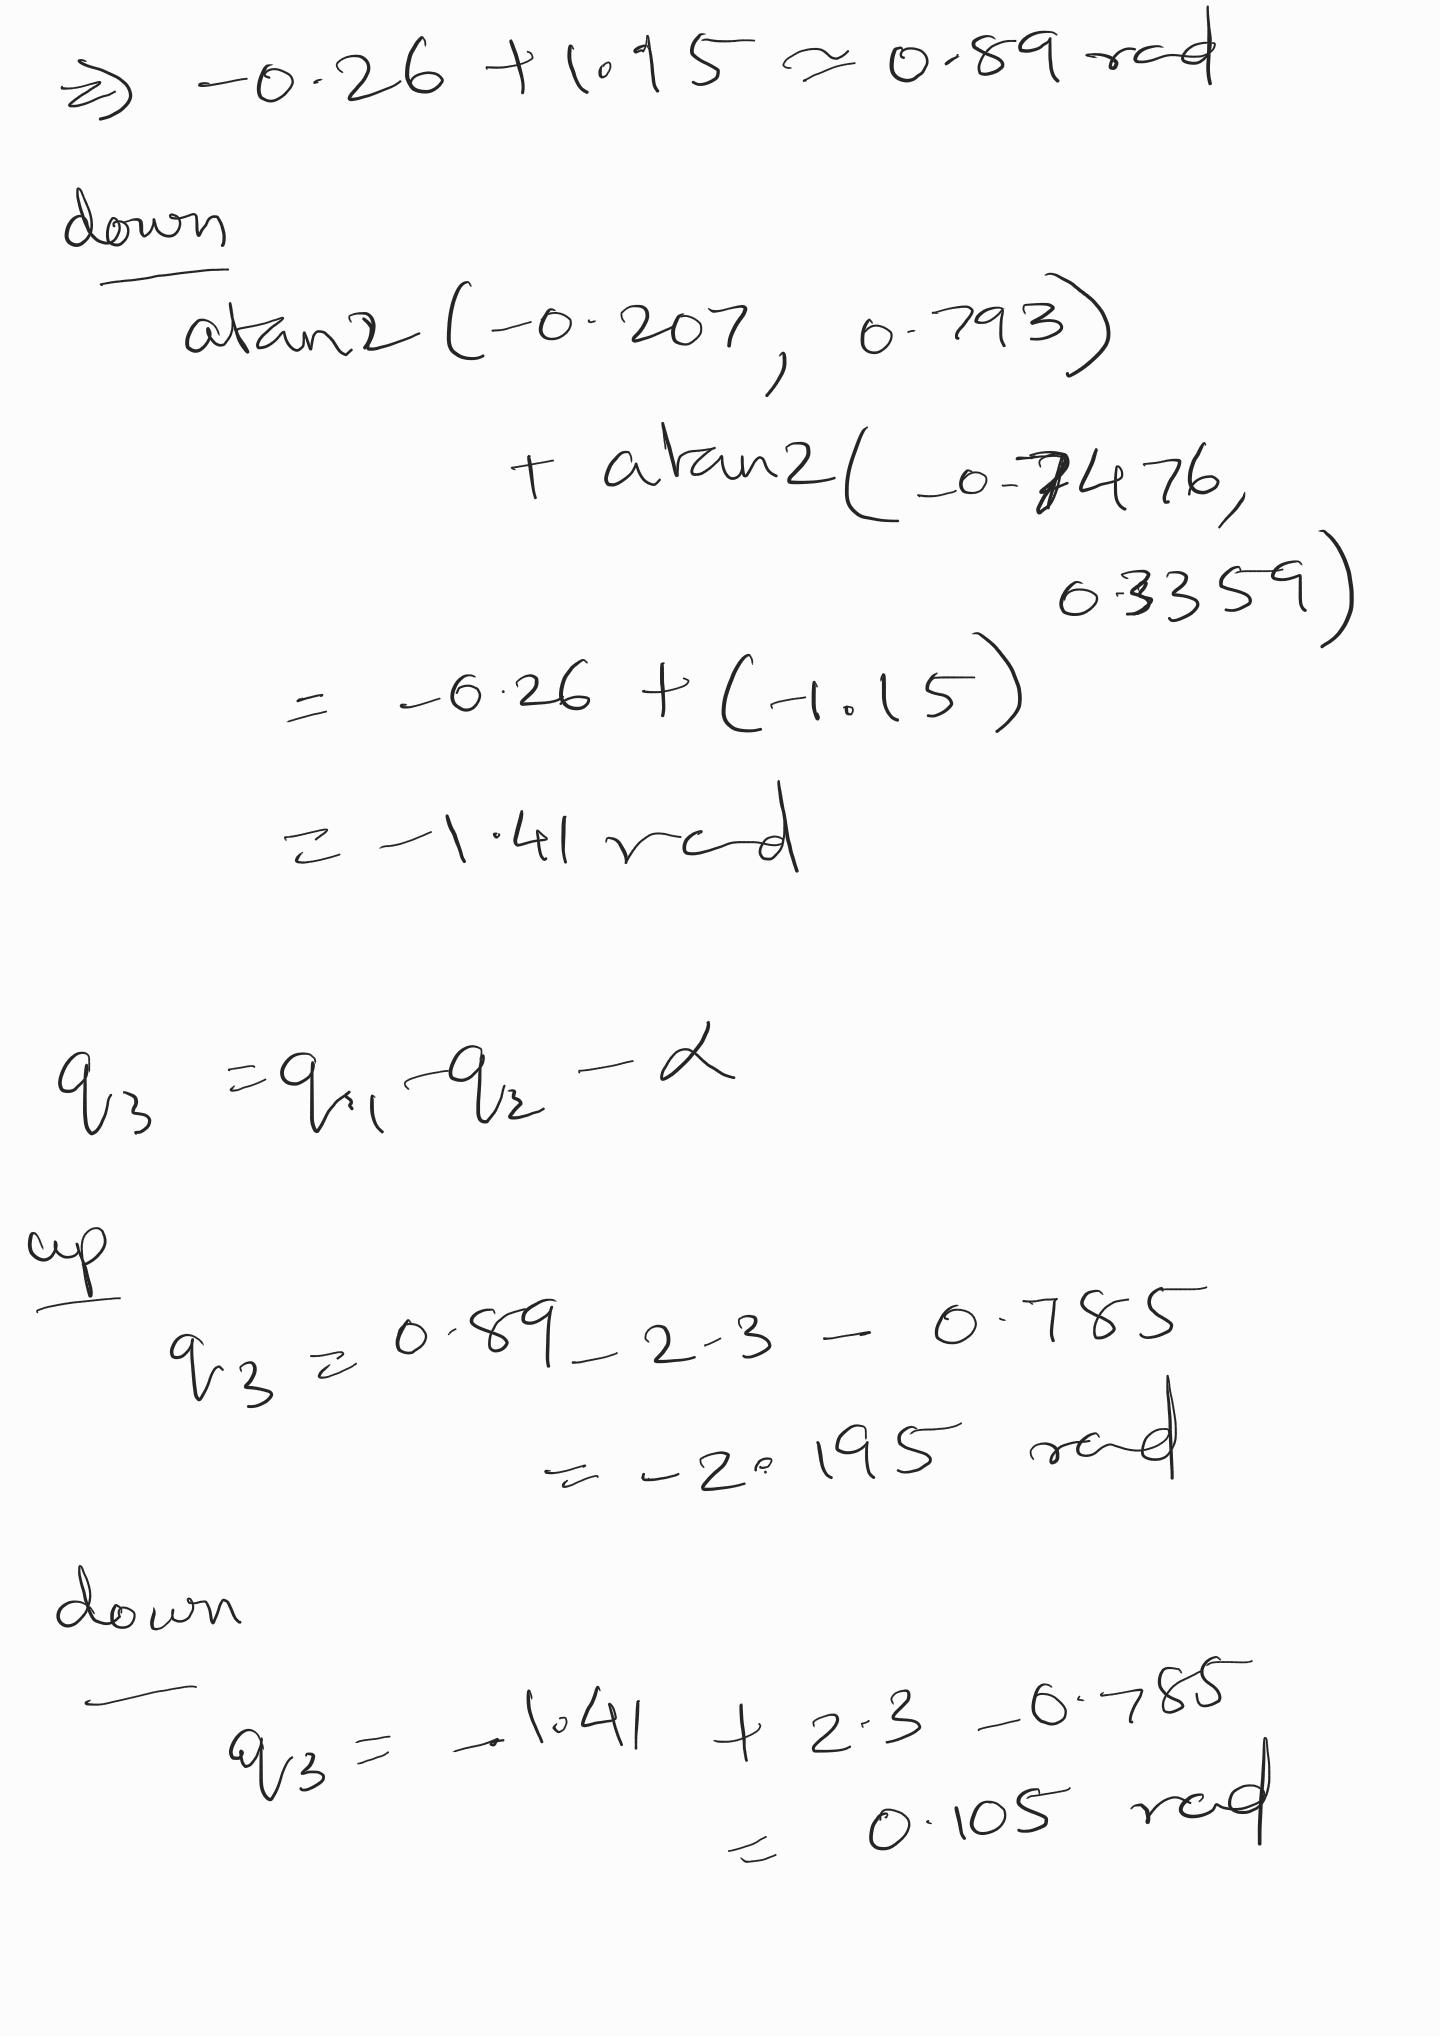 ⇒ -0.26 + 1.15 ≃ 0.89 rad
down
atan2 (-0.207, 0.793)
+ atan2( -0.7476,
0.3359)
= -0.26 + (-1.15)
= -1.41 rad
q₃ = q₁ - q₂ - α
up
q₃ = 0.89 - 2.3 - 0.785
= -2.195 rad
down
q₃ = -1.41 + 2.3 - 0.785
= 0.105 rad